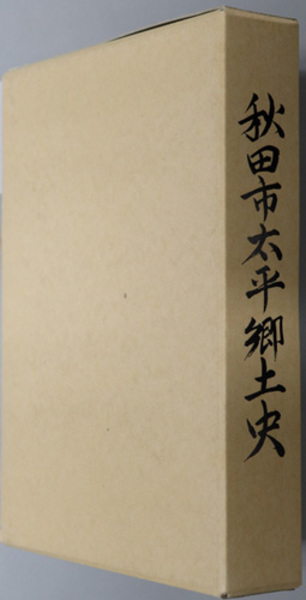 秋田市太平郷土史